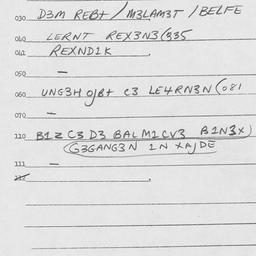 030. D3M REBt / M3LAM3T / BELFE
040 LERNT REX3N3 (335
041 REXND1K
050 —
060 UNG3H OJBt C3 LE4RN3N (081
070 —
110 B1Z C3 D3 BAL M1CV3 B1N3X)
(G3GANG3N 1N XAJDE
111 —